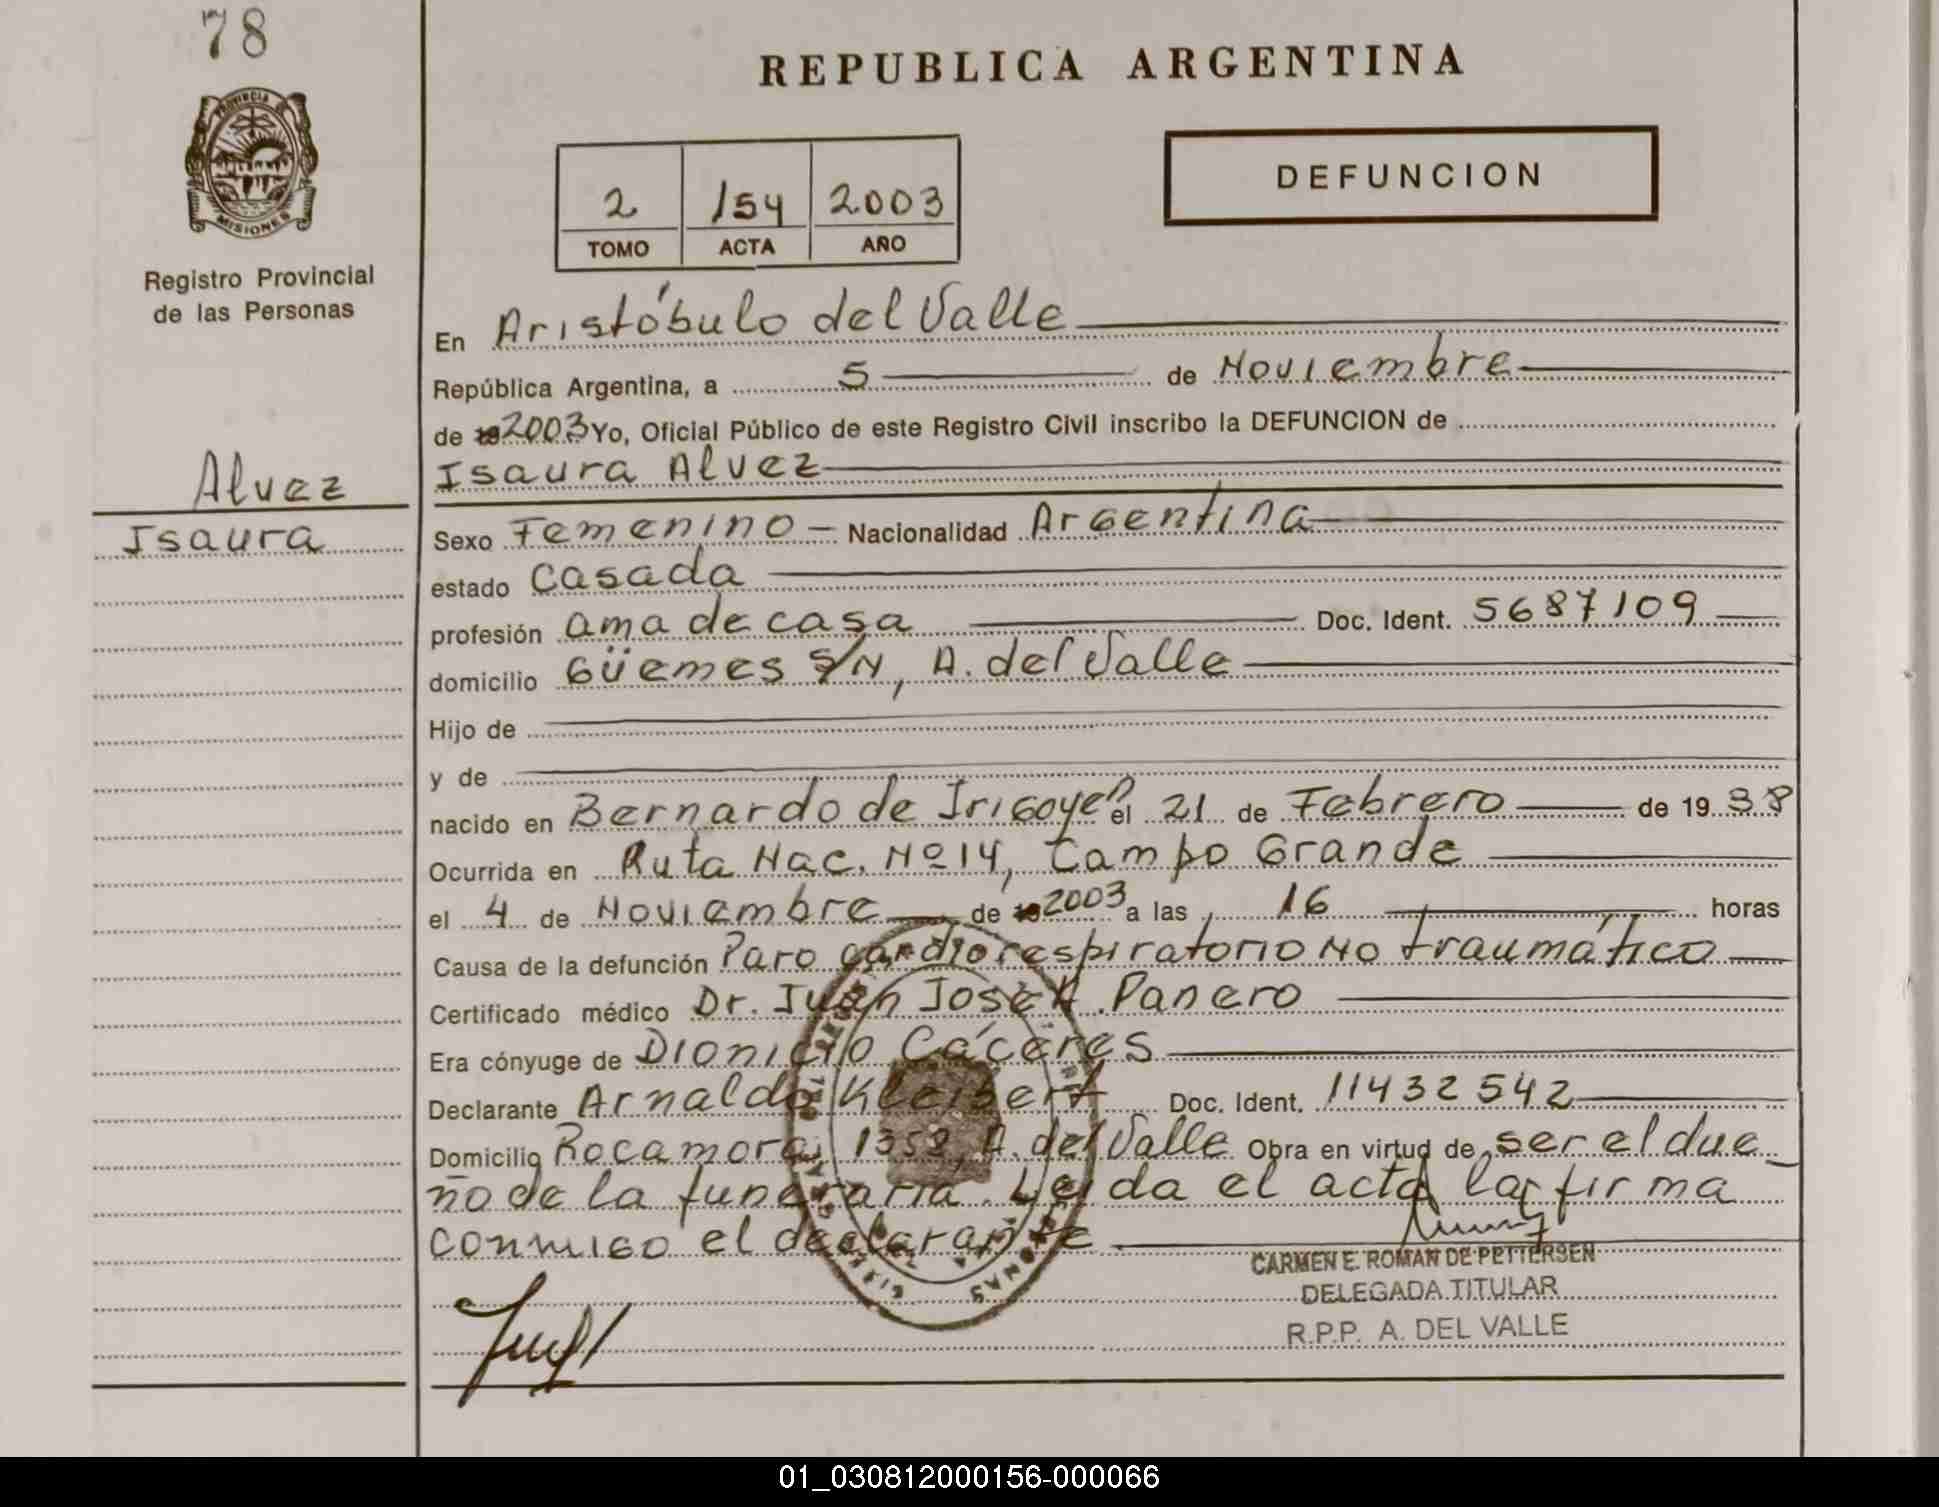 78
REPUBLICA ARGENTINA
PROVINCIA DE
MISIONES
Registro Provincial
de las Personas
2 154 2003
TOMO ACTA AÑO
DEFUNCION
En Aristóbulo del Valle
República Argentina, a 5 de Noviembre
de 2003 Yo, Oficial Público de este Registro Civil inscribo la DEFUNCION de
Isaura Alvez
Alvez
Isaura
Sexo Femenino Nacionalidad Argentina
estado casada
profesión ama de casa Doc. Ident. 5687109
domicilio Güemes S/N, A. del Valle
Hijo de
y de
nacido en Bernardo de Irigoyen el 21 de Febrero de 19 38
Ocurrida en Ruta Nac. Nº 14, Campo Grande
el 4 de Noviembre de 2003 a las 16 horas
Causa de la defunción Paro cardiorespiratorio No traumático
Certificado médico Dr. Juan José A. Panero
Era cónyuge de Dionicio Cáceres
Declarante Arnaldo Kleibert Doc. Ident. 11432542
Domicilio Rocamora 1358, A. del Valle Obra en virtud de ser el due_
ño de la funeraria. Leida el acta la firma
conmigo el declarante
CARMEN E. ROMAN DE PETTERSEN
DELEGADA TITULAR
R.P.P. A. DEL VALLE
01_030812000156-000066